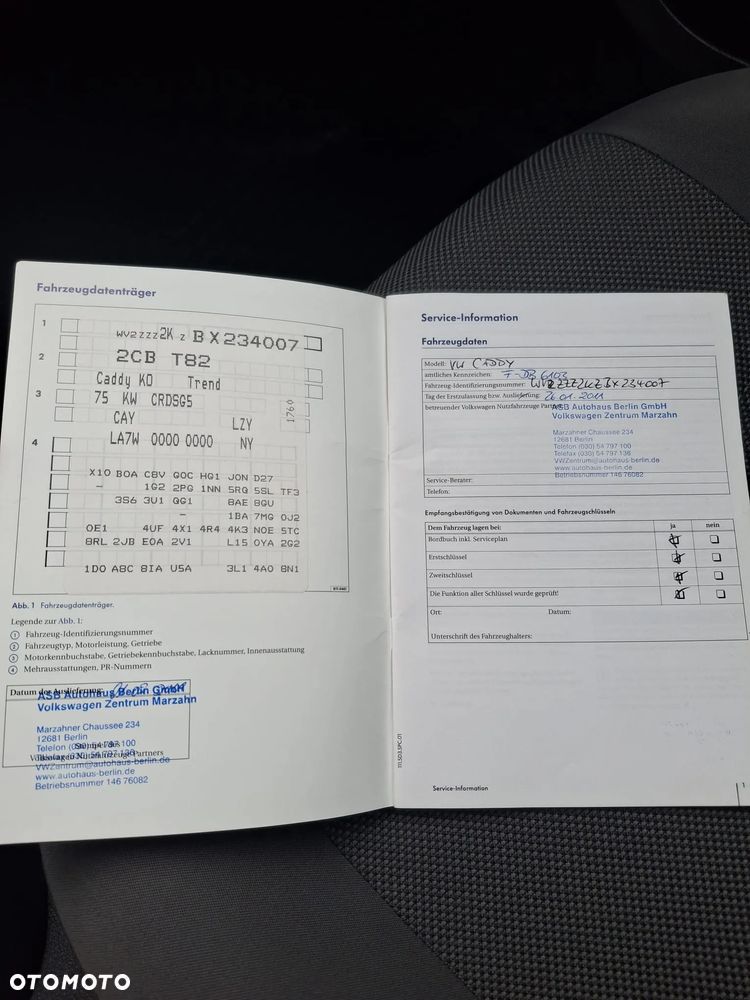 Fahrzeugdatenträger
1
WV2ZZZ2K Z BX234007
2
2CB T82
Caddy KO Trend
3
75 KW CRDSG5
1760
CAY LZY
4
LA7W 0000 0000 NY
X10 B0A C8V Q0C HG1 J0N D27
- 1G2 2PG 1NN 5RQ 5SL TF3
3S6 3U1 QG1 8AE 8GU
- 1BA 7MG 0J2
0E1 4UF 4X1 4R4 4K3 N0E 5TC
8RL 2JB E0A 2V1 L15 0YA 2G2
1D0 A8C 8IA U5A 3L1 4A0 8N1
Abb. 1 Fahrzeugdatenträger.
Legende zur Abb. 1:
1 Fahrzeug-Identifizierungsnummer
2 Fahrzeugtyp, Motorleistung, Getriebe
3 Motorkennbuchstabe, Getriebekennbuchstabe, Lacknummer, Innenausstattung
4 Mehrausstattungen, PR-Nummern
Datum der Auslieferung:
ASB Autohaus Berlin GmbH
Volkswagen Zentrum Marzahn
Marzahner Chaussee 234
12681 Berlin
Telefon (030) 54 797 100
Stempel des
Telefax (030) 54 797 136
Volkswagen Nutzfahrzeuge Partners
VWZentrum@autohaus-berlin.de
www.autohaus-berlin.de
Betriebsnummer 146 76082
Service-Information
Fahrzeugdaten
Modell: VW CADDY
amtliches Kennzeichen: F-DB 6103
Fahrzeug-Identifizierungsnummer: WV2ZZZ2KZBX234007
Tag der Erstzulassung bzw. Auslieferung: 26.01.2011
betreuender Volkswagen Nutzfahrzeuge Partner:
ASB Autohaus Berlin GmbH
Volkswagen Zentrum Marzahn
Marzahner Chaussee 234
12681 Berlin
Telefon (030) 54 797 100
Telefax (030) 54 797 136
VWZentrum@autohaus-berlin.de
www.autohaus-berlin.de
Betriebsnummer 146 76082
Service-Berater:
Telefon:
Empfangsbestätigung von Dokumenten und Fahrzeugschlüsseln
Dem Fahrzeug lagen bei: ja nein
Bordbuch inkl. Serviceplan
Erstschlüssel
Zweitschlüssel
Die Funktion aller Schlüssel wurde geprüft!
Ort: Datum:
Unterschrift des Fahrzeughalters:
111.5D3.SPC.01
Service-Information 1
OTOMOTO